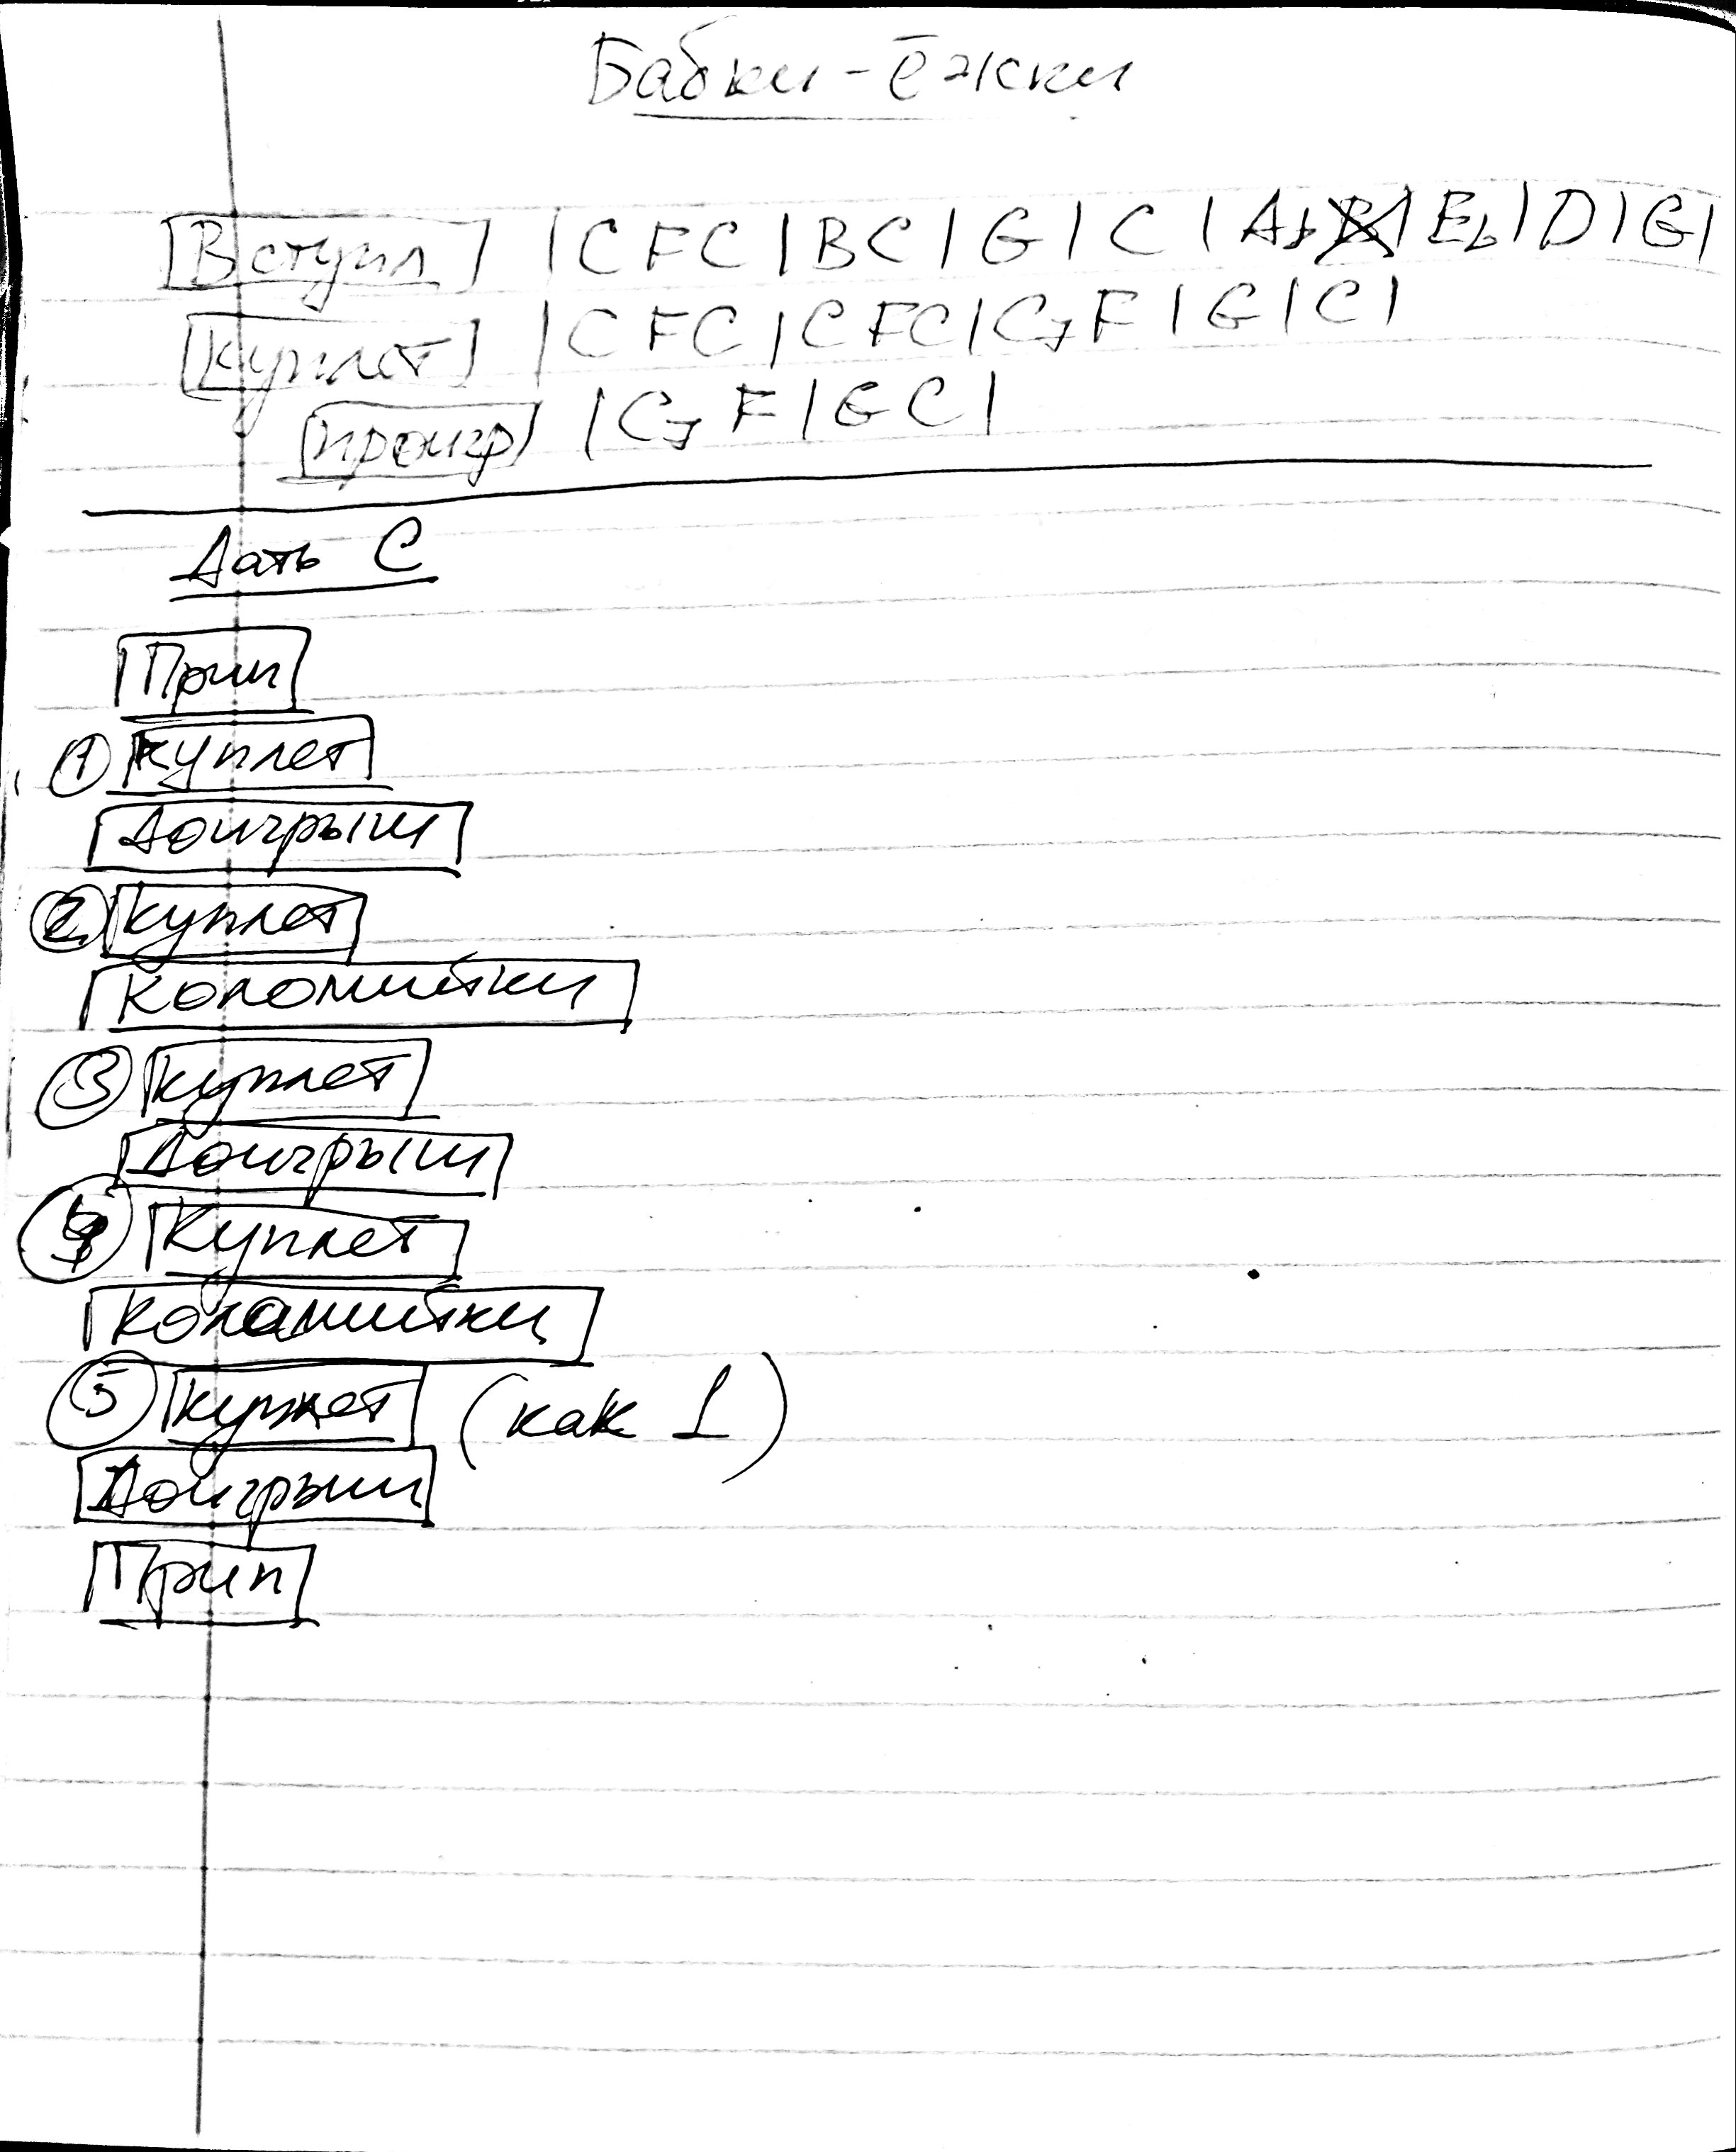 Бабки-ёжки
Вступл | C F C | B C | G | C | Ab | Eb | D | G |
Куплет | C F C | C F C | C7 F | G | C |
проигр | C7 F | G C |
Дать C
Прип
① Куплет
Доигрыш
② Куплет
Коломийки
③ Куплет
Доигрыш
④ Куплет
Коламийки
⑤ Куплет (как 1)
Доигрыш
Прип